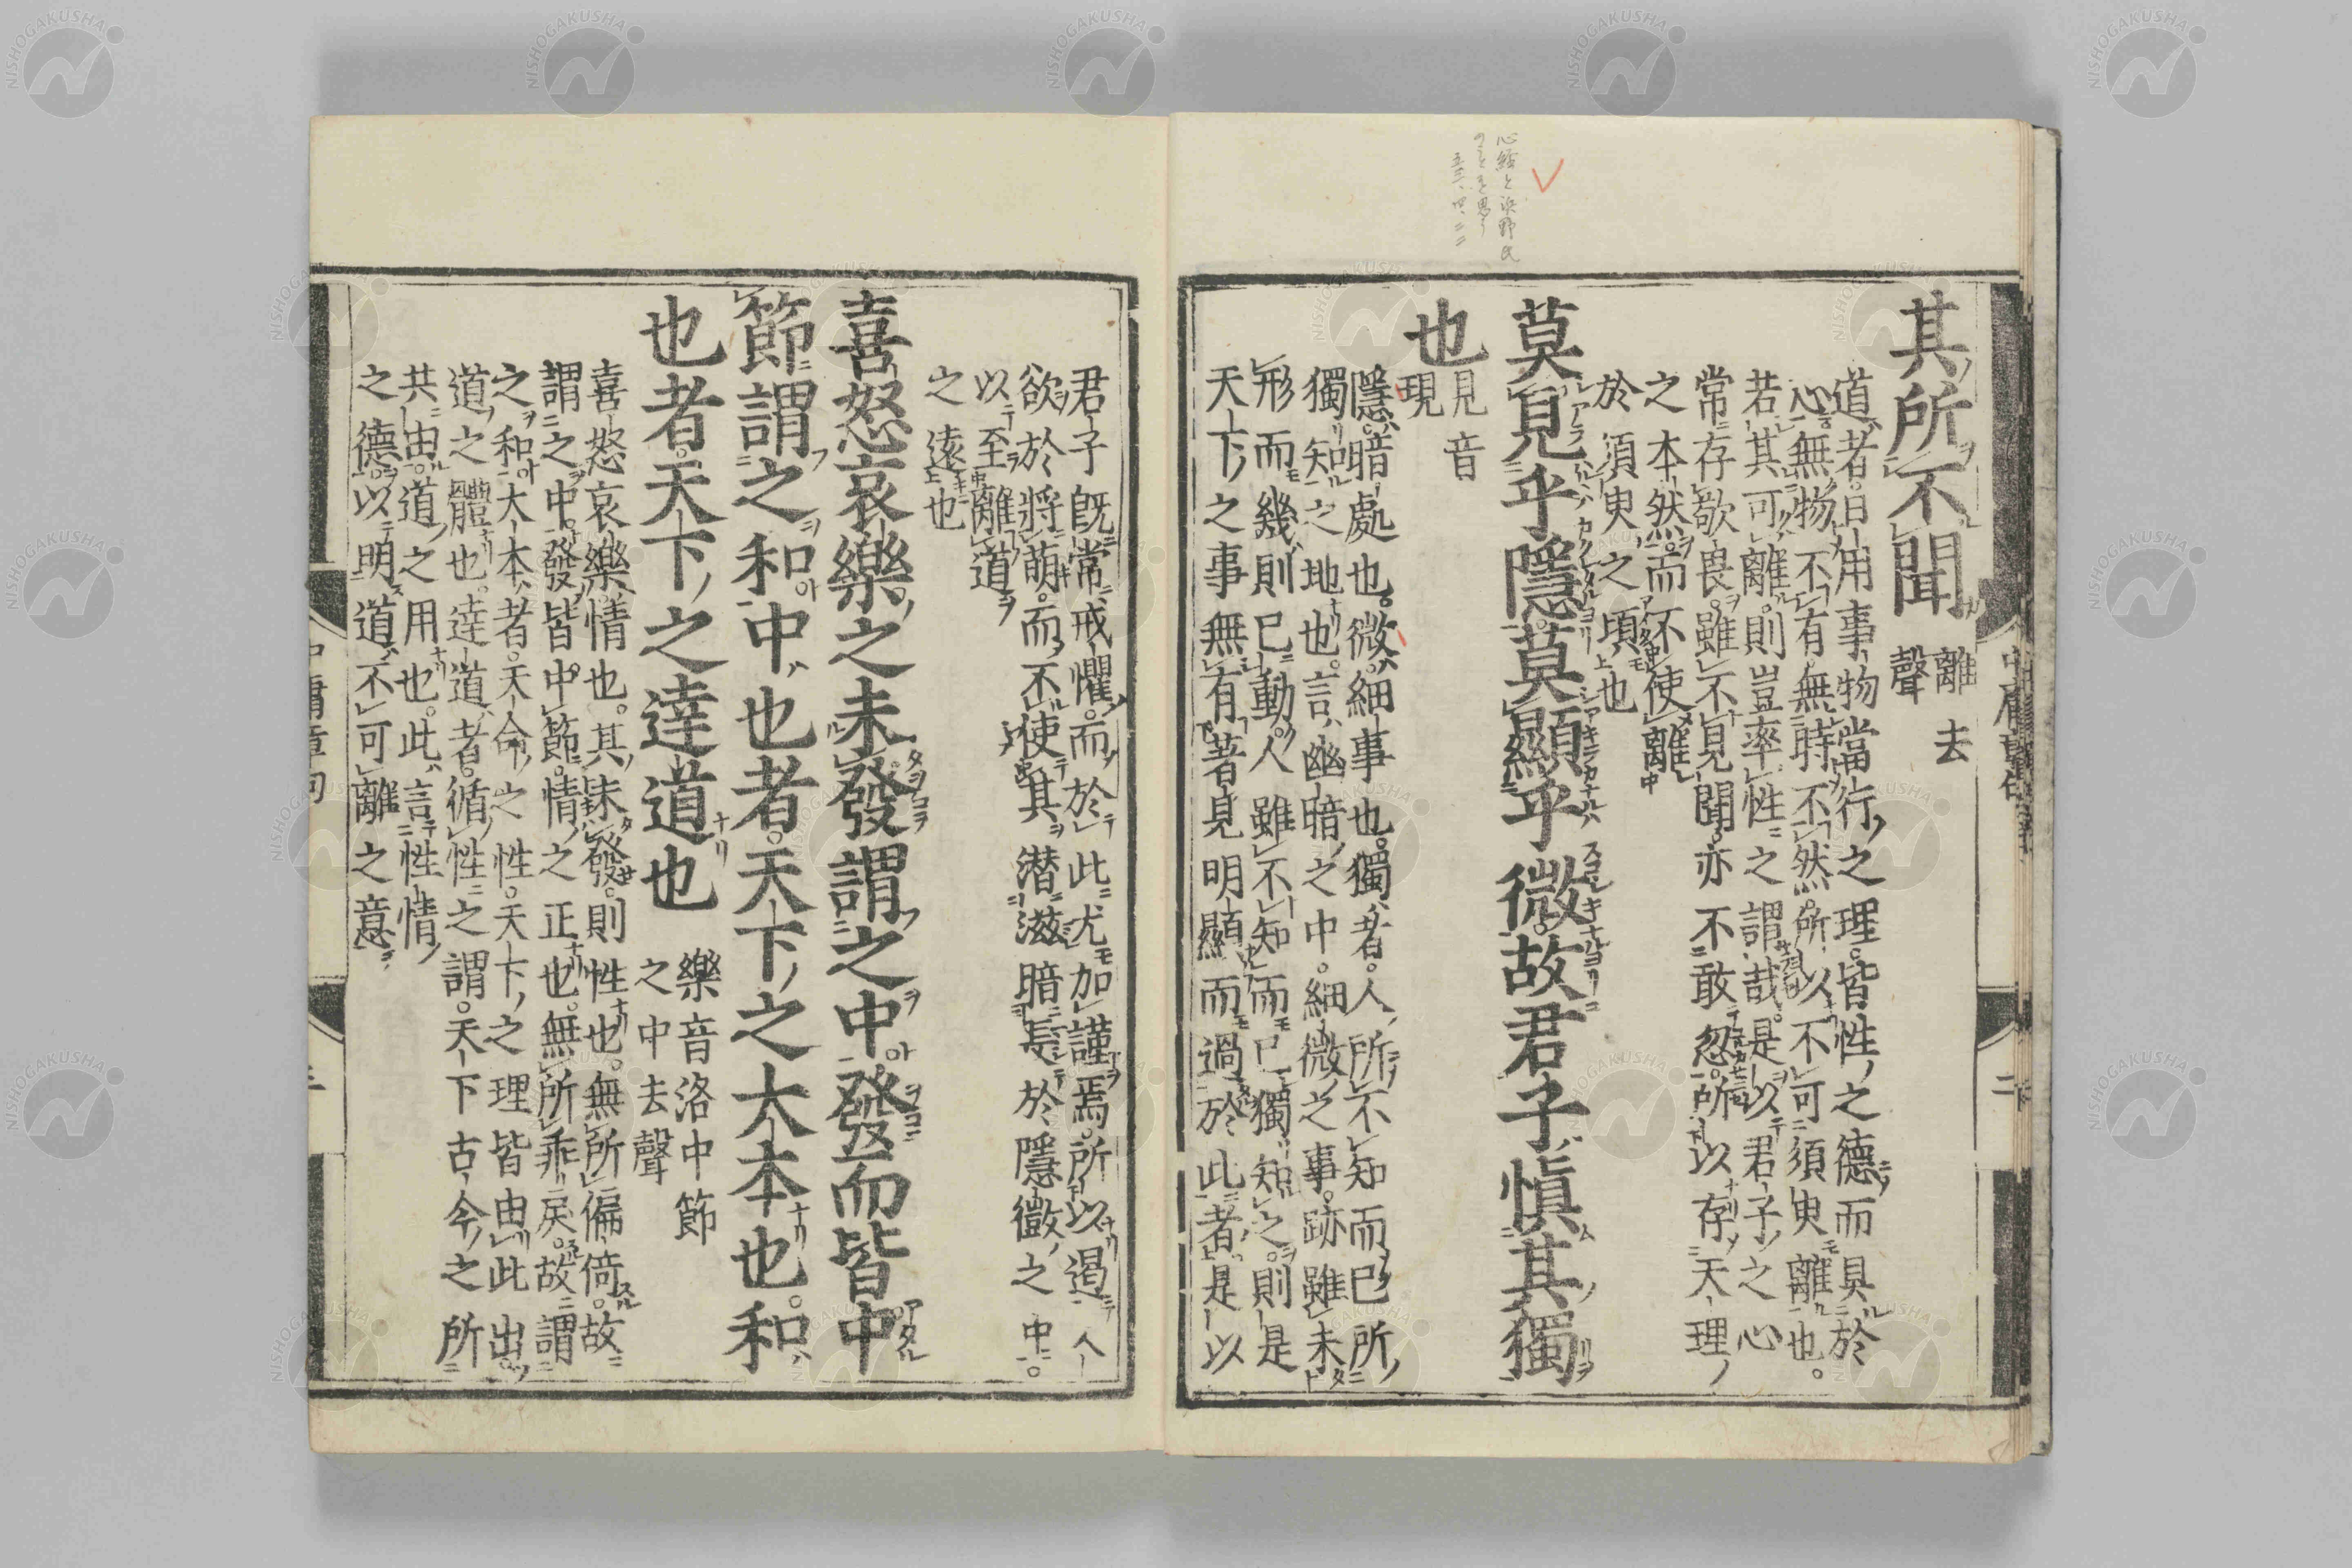 其所不聞 離去
聲
道者。日用事物當行之理。皆性之德而具於
心。無物不有。無時不然。所以不可須臾離也。
若其可離。則豈率性之謂哉。是以君子之心
常存敬畏。雖不見聞。亦不敢忽。所以存天理
之本然。而不使離
於須臾之頃也
莫見乎隱。莫顯乎微。故君子愼其獨
也 見音
現
隱。暗處也。微。細事也。獨者。人所不知而已所
獨知之地也。言幽暗之中。細微之事。跡雖未
形而幾則已動。人雖不知而已獨知之。則是
天下之事無有著見明顯而過於此者。是以
君子旣常戒懼。而於此尤加謹焉。所以遏人
欲於將萌。而不使其潛滋暗長於隱微之中。
以至離道
之遠也
喜怒哀樂之未發謂之中。發而皆中
節謂之和。中也者。天下之大本也。和
也者。天下之達道也 樂音洛中節
之中去聲
喜怒哀樂。情也。其未發。則性也。無所偏倚。故
謂之中。發皆中節。情之正也。無所乖戾。故謂
之和。大本者。天命之性。天下之理皆由此出。
道之體也。達道者。循性之謂。天下古今之所
共由。道之用也。此言性情
之德。以明道不可離之意
中庸章句
二
NISHOGAKUSHA